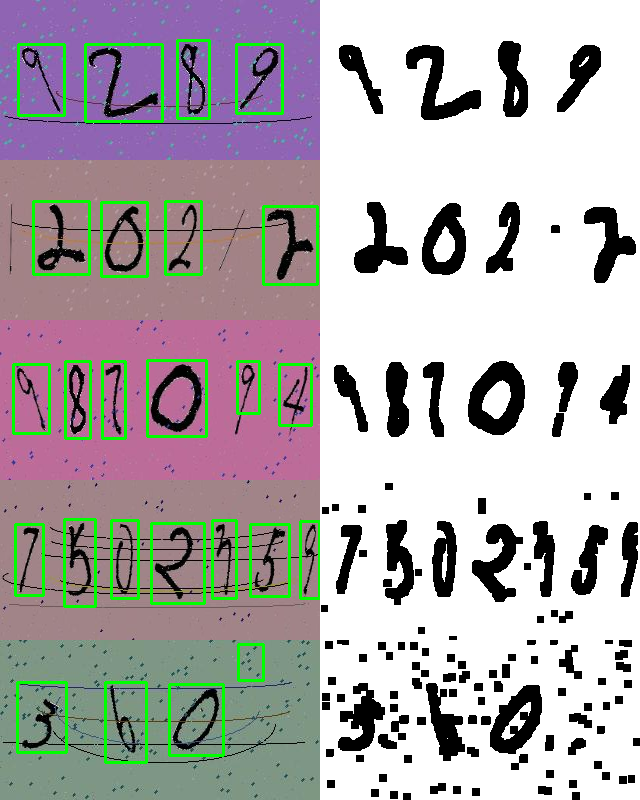 9289 9289
120212 2022
981094 981094
7502759 7502759
360 360